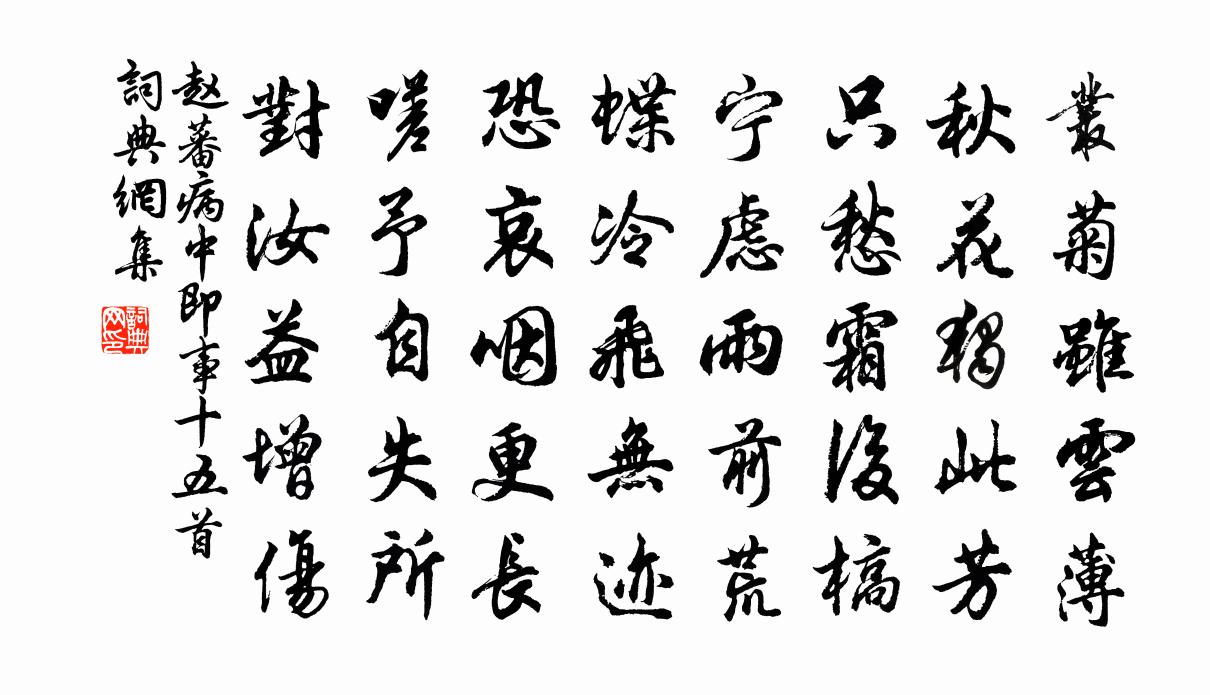 叢菊雖雲薄
秋花獨此芳
只愁霜後槁
宁慮雨前荒
蝶冷飛無迹
恐哀咽更長
嗟予自失所
對汝益增傷
赵蕃病中即事十五首
詞典網集
詞典网印